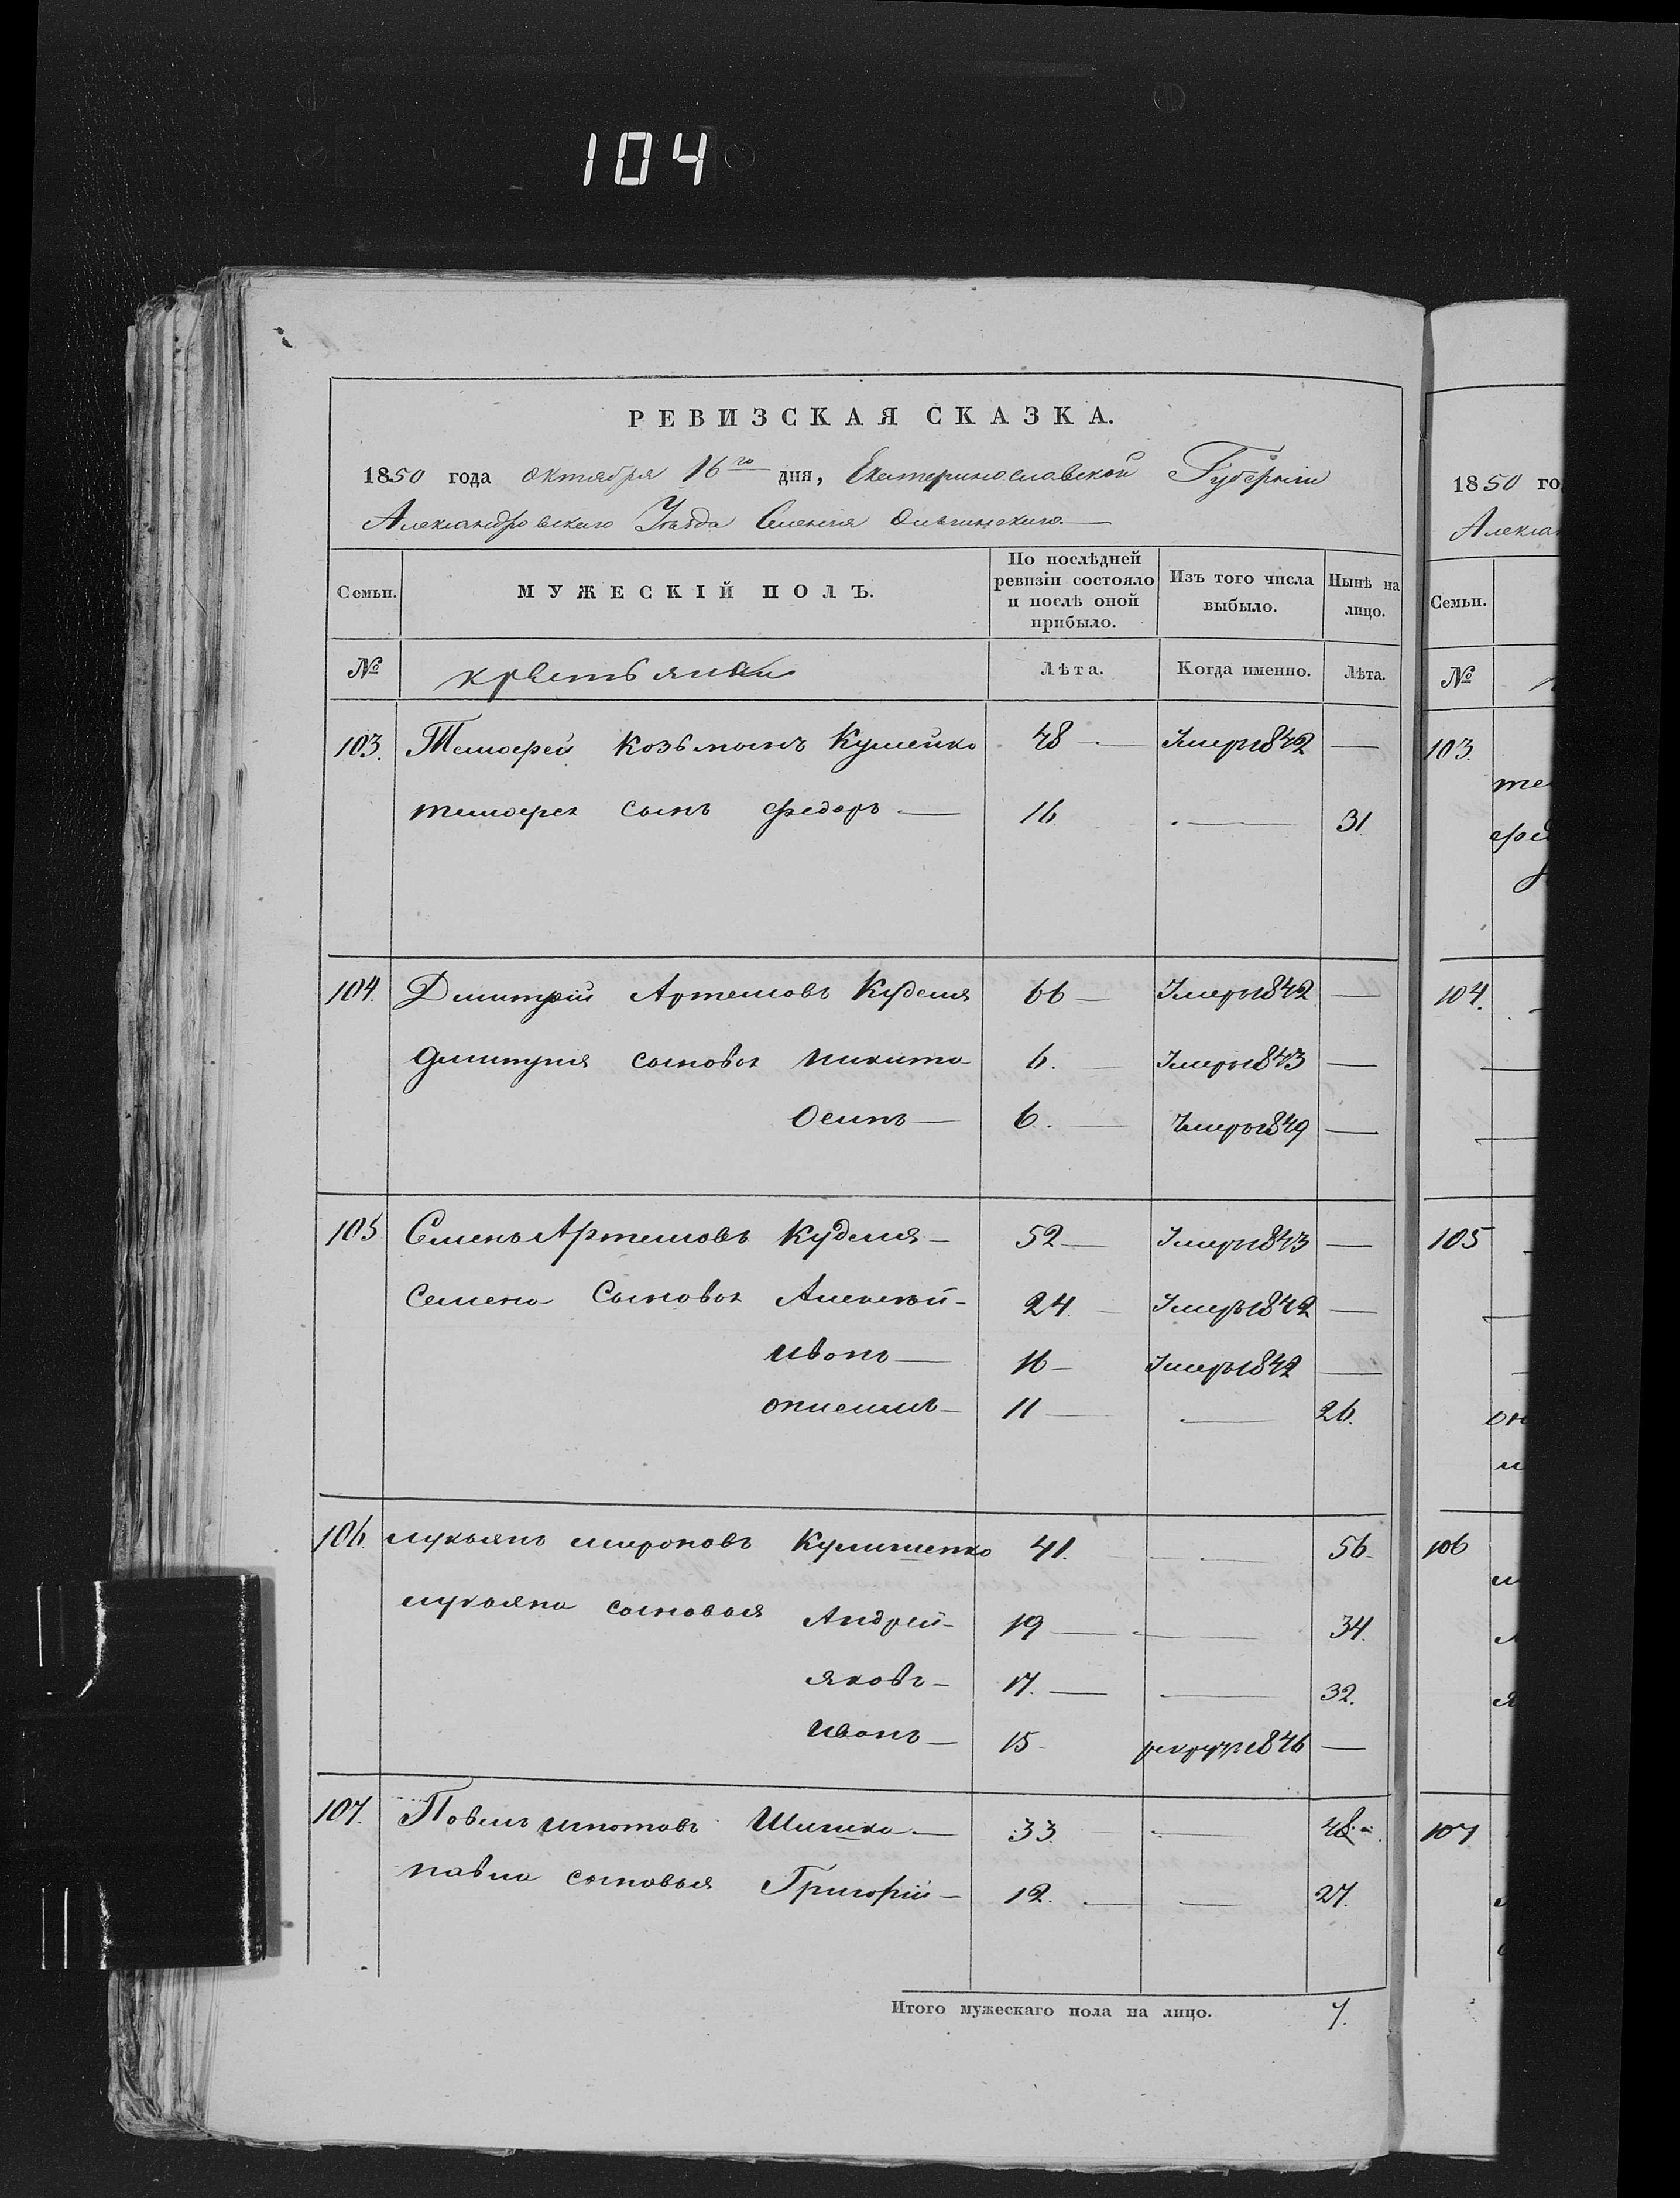 104
РЕВИЗСКАЯ СКАЗКА.
1850 года октября 16го дня, Екатеринославской Губернии
Александровскаго Уезда Селения Ольгинскаго
Семьи. МУЖЕСКІЙ ПОЛЪ. По послѣдней ревизіи состояло и послѣ оной прибыло. Изъ того числа выбыло. Нынѣ на лицо.
№ крестьяне Лѣта. Когда именно. Лѣта.
103. Тимофей Козьминъ 48 — Умеръ 1842 —
тимофея сынъ федоръ — 16 — 31.
104. Дмитрій Артемовъ Куделя 66 — Умеръ 1842 —
Дмитрия сыновья никита 6. — Умеръ 1843 —
Осипъ — 6. — Умеръ 1849 —
105 Семенъ Артемовъ Куделя — 52 — Умеръ 1843 —
Семена Сыновья Алексѣй — 24 — Умеръ 1842 —
иванъ — 16 — Умеръ 1842 —
онисимъ — 11 — — 26.
106. лукьянъ мироновъ 41. — 56
лукьяна сыновья Андрей — 19 — — 34.
яковъ — 17. — — 32.
иванъ — 15 рекрут 1846 —
107. Павелъ Шишка — 33 — 48.
павла сыновья Григорій — 12. — — 27.
Итого мужескаго пола на лицо. 7.
1850 го
Алексан
Семьи.
№
103.
104.
105
106
107